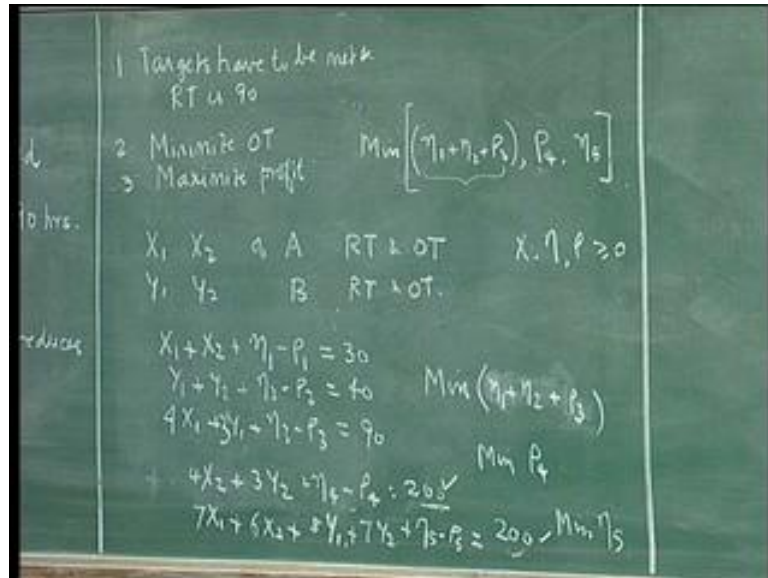 1 Targets have to be met &
RT is 90
2 Minimize OT
3 Maximize profit
Min [(η₁+η₂+ρ₃), ρ₄, η₅]
d
10 hrs.
X₁ X₂ A RT & OT X, η, ρ ≥ 0
Y₁ Y₂ B RT & OT.
reduces
X₁ + X₂ + η₁ - ρ₁ = 30
Y₁ + Y₂ + η₂ - ρ₂ = 40
4X₁ + 3Y₁ + η₃ - ρ₃ = 90
Min (η₁ + η₂ + ρ₃)
Min ρ₄
4X₂ + 3Y₂ + η₄ - ρ₄ = 200 ✓
7X₁ + 6X₂ + 8Y₁ + 7Y₂ + η₅ - ρ₅ = 200 ✓ Min η₅